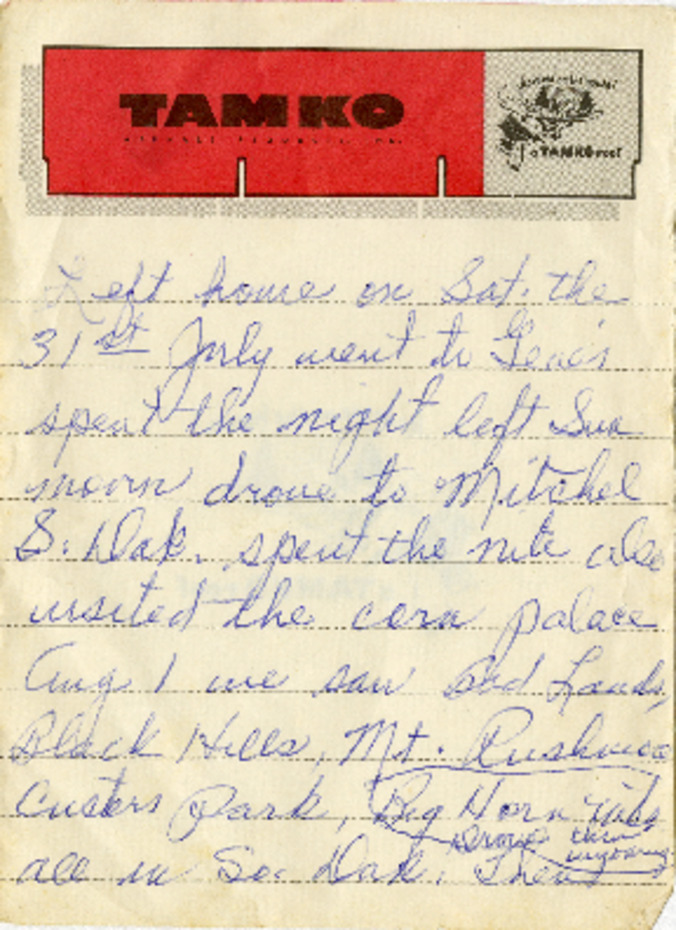 TAMKO
a TAMKO roof
Left home on Sat. the
31st July went to Gene's
spent the night left Sun
moorn drove to Mitchel
S. Dak. spent the nite also
visited the corn palace
Aug 1 we saw Bad Lands,
Black Hills, Mt. Rushmore
Custers Park, Big Horn
Drove thru wyoming
all in So. Dak. Then